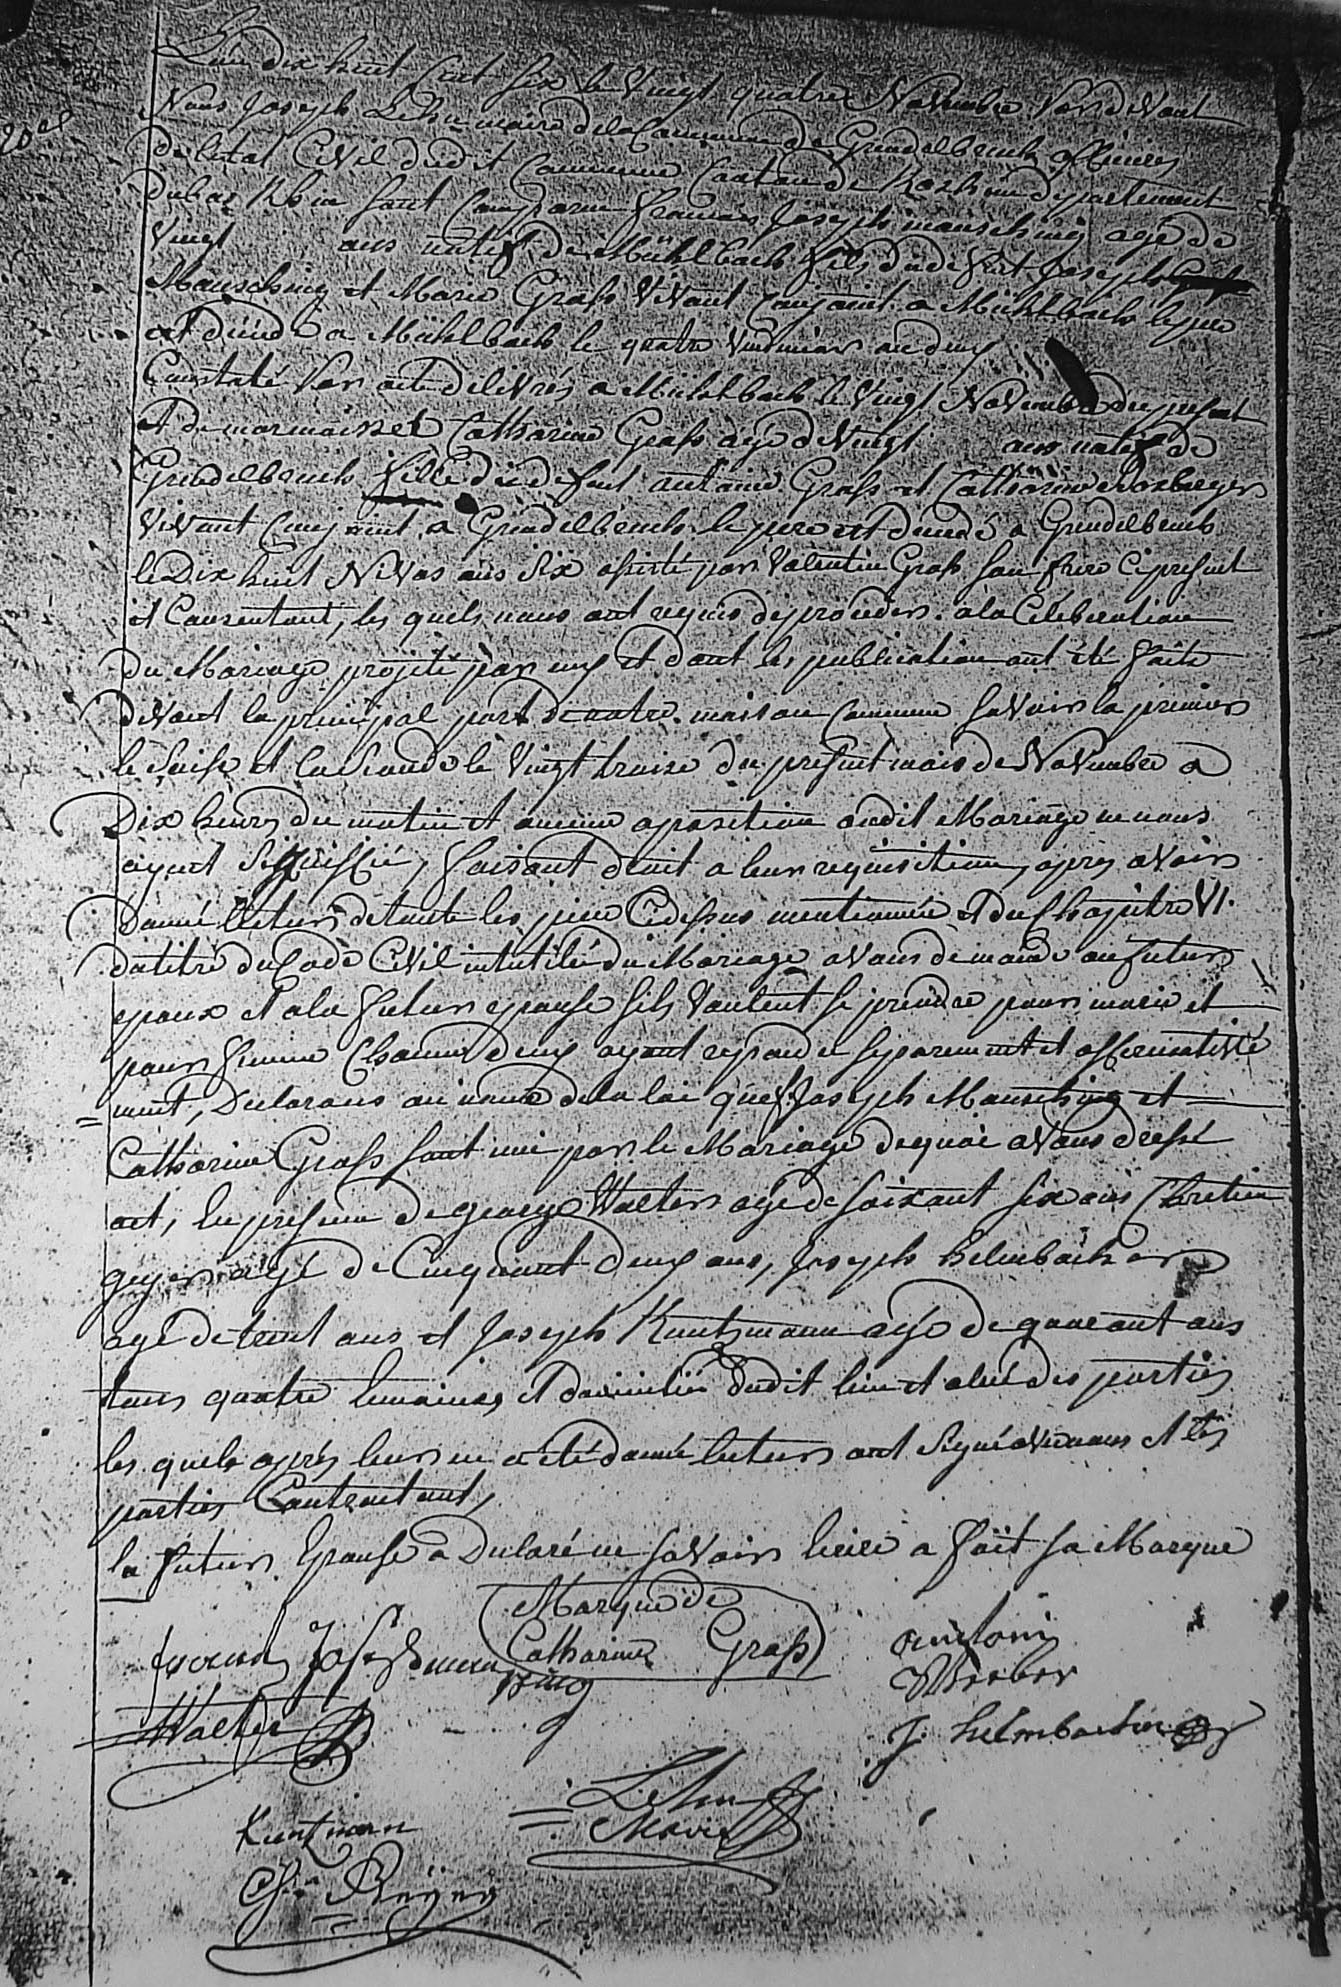 L'an dix huit Cent Six le Vingt quatre Novembre Pardevant
Nous Joseph Lehn maire de la Commune de Grendelbruch officiers
de l'etat Civil dudit Commune Canton de Rosheim departement
du bas Rhin sont Comparu francois Joseph Mansching agé de
Vingt ans natif de Mühlbach fils du defunt Joseph
Mansching et Marie Grass Vivant Conjoint a Mühlbach le pere
est decedé a Mühlbach le quatre Vendmiaire an deux
Constaté par acte delivrés a Mühlbach le Vingt Novembre du present
et de marmoisel Catharine Grass agé de Vingt ans natif de
Grendelbruch fille du defunt antoine Grass et Catharine
Vivant Conjoint a Grendelbruch le pere est decedé a Grendelbruch
le Dix huit Nivos ans Six assisté par Valentin Grass son frere Ci present
et Consentant, les quels nous ont requis de procéder a la Celebration
du Mariage projeté par eux et dont les publication ont été faite
devant la principal porte de notre maison Commune Savoir la premier
le Saise et la Seconde le Vingt troise du present mois de Novembre a
Dix heures du matin et aucune oposition audit Mariage ne nous
ayant Signiffié, faisant droit a leur requisition, apres avoir
Donné lecture de toute les piece Cidessus mentionnée et du Chapitre VI.
du titre du Code Civil intutilé du Mariage avons demandé au futur
epoux et a la future epouse Sils Veulent Se prendre pour marie et
pour femme Chacun deux ayant repondu separement et affirmative
ment, Declarons au nom de la loi que f. Joseph Mansching et
Catharine Grass sont uni par le Mariage de quoi avons dressé
act, En presence de george Walter agé de soixant six ans Chretien
geyer agé de Cinquant deux ans, Joseph helmbacher
agé de trent ans et Joseph Kuntzmann agé de quarant ans
tous quatre temoines et domicilié dudit lieu et des parties
les quels après leur en a été donnée lecture ont Signé avec nous et les
parties Contractant,
la future Epouse a Declaré ne savoir Ecrire a fait sa Marque
Marque de
Catharine Grass
frands Joseph man
sching
antoni
Weeber
Walter
J. helmbacher
Lehn
Maire
Kuntzmann